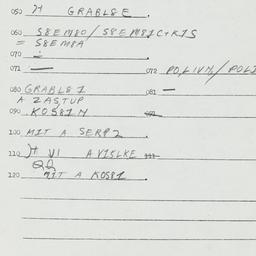 050 H GRABL8E.
060 S8EM80/S8EM8IC+RIS
= S8EM8A
070 -
071 — 072 PO,LIVN/POLI
080 GRABL8I 081 —
A ZASTUP
090 KOS8IN 091
100 MIT A SERP2
110 H VI AVISLKE 111
120 MIT A KOS8I.